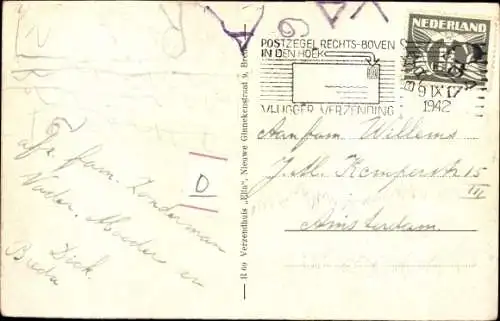 POSTZEGEL RECHTS-BOVEN
IN DEN HOEK
VLUGGER VERZENDING
NEDERLAND
BREDA
9 IX 17
1942
Aan fam. Willems
J.M. Kemperstr 15
III
Amsterdam.
D
afz. fam. Zonderman
Vader, Moeder en
Dick.
Breda
R 69 Verzendhuis „Elta", Nieuwe Ginnekenstraat 9, Breda